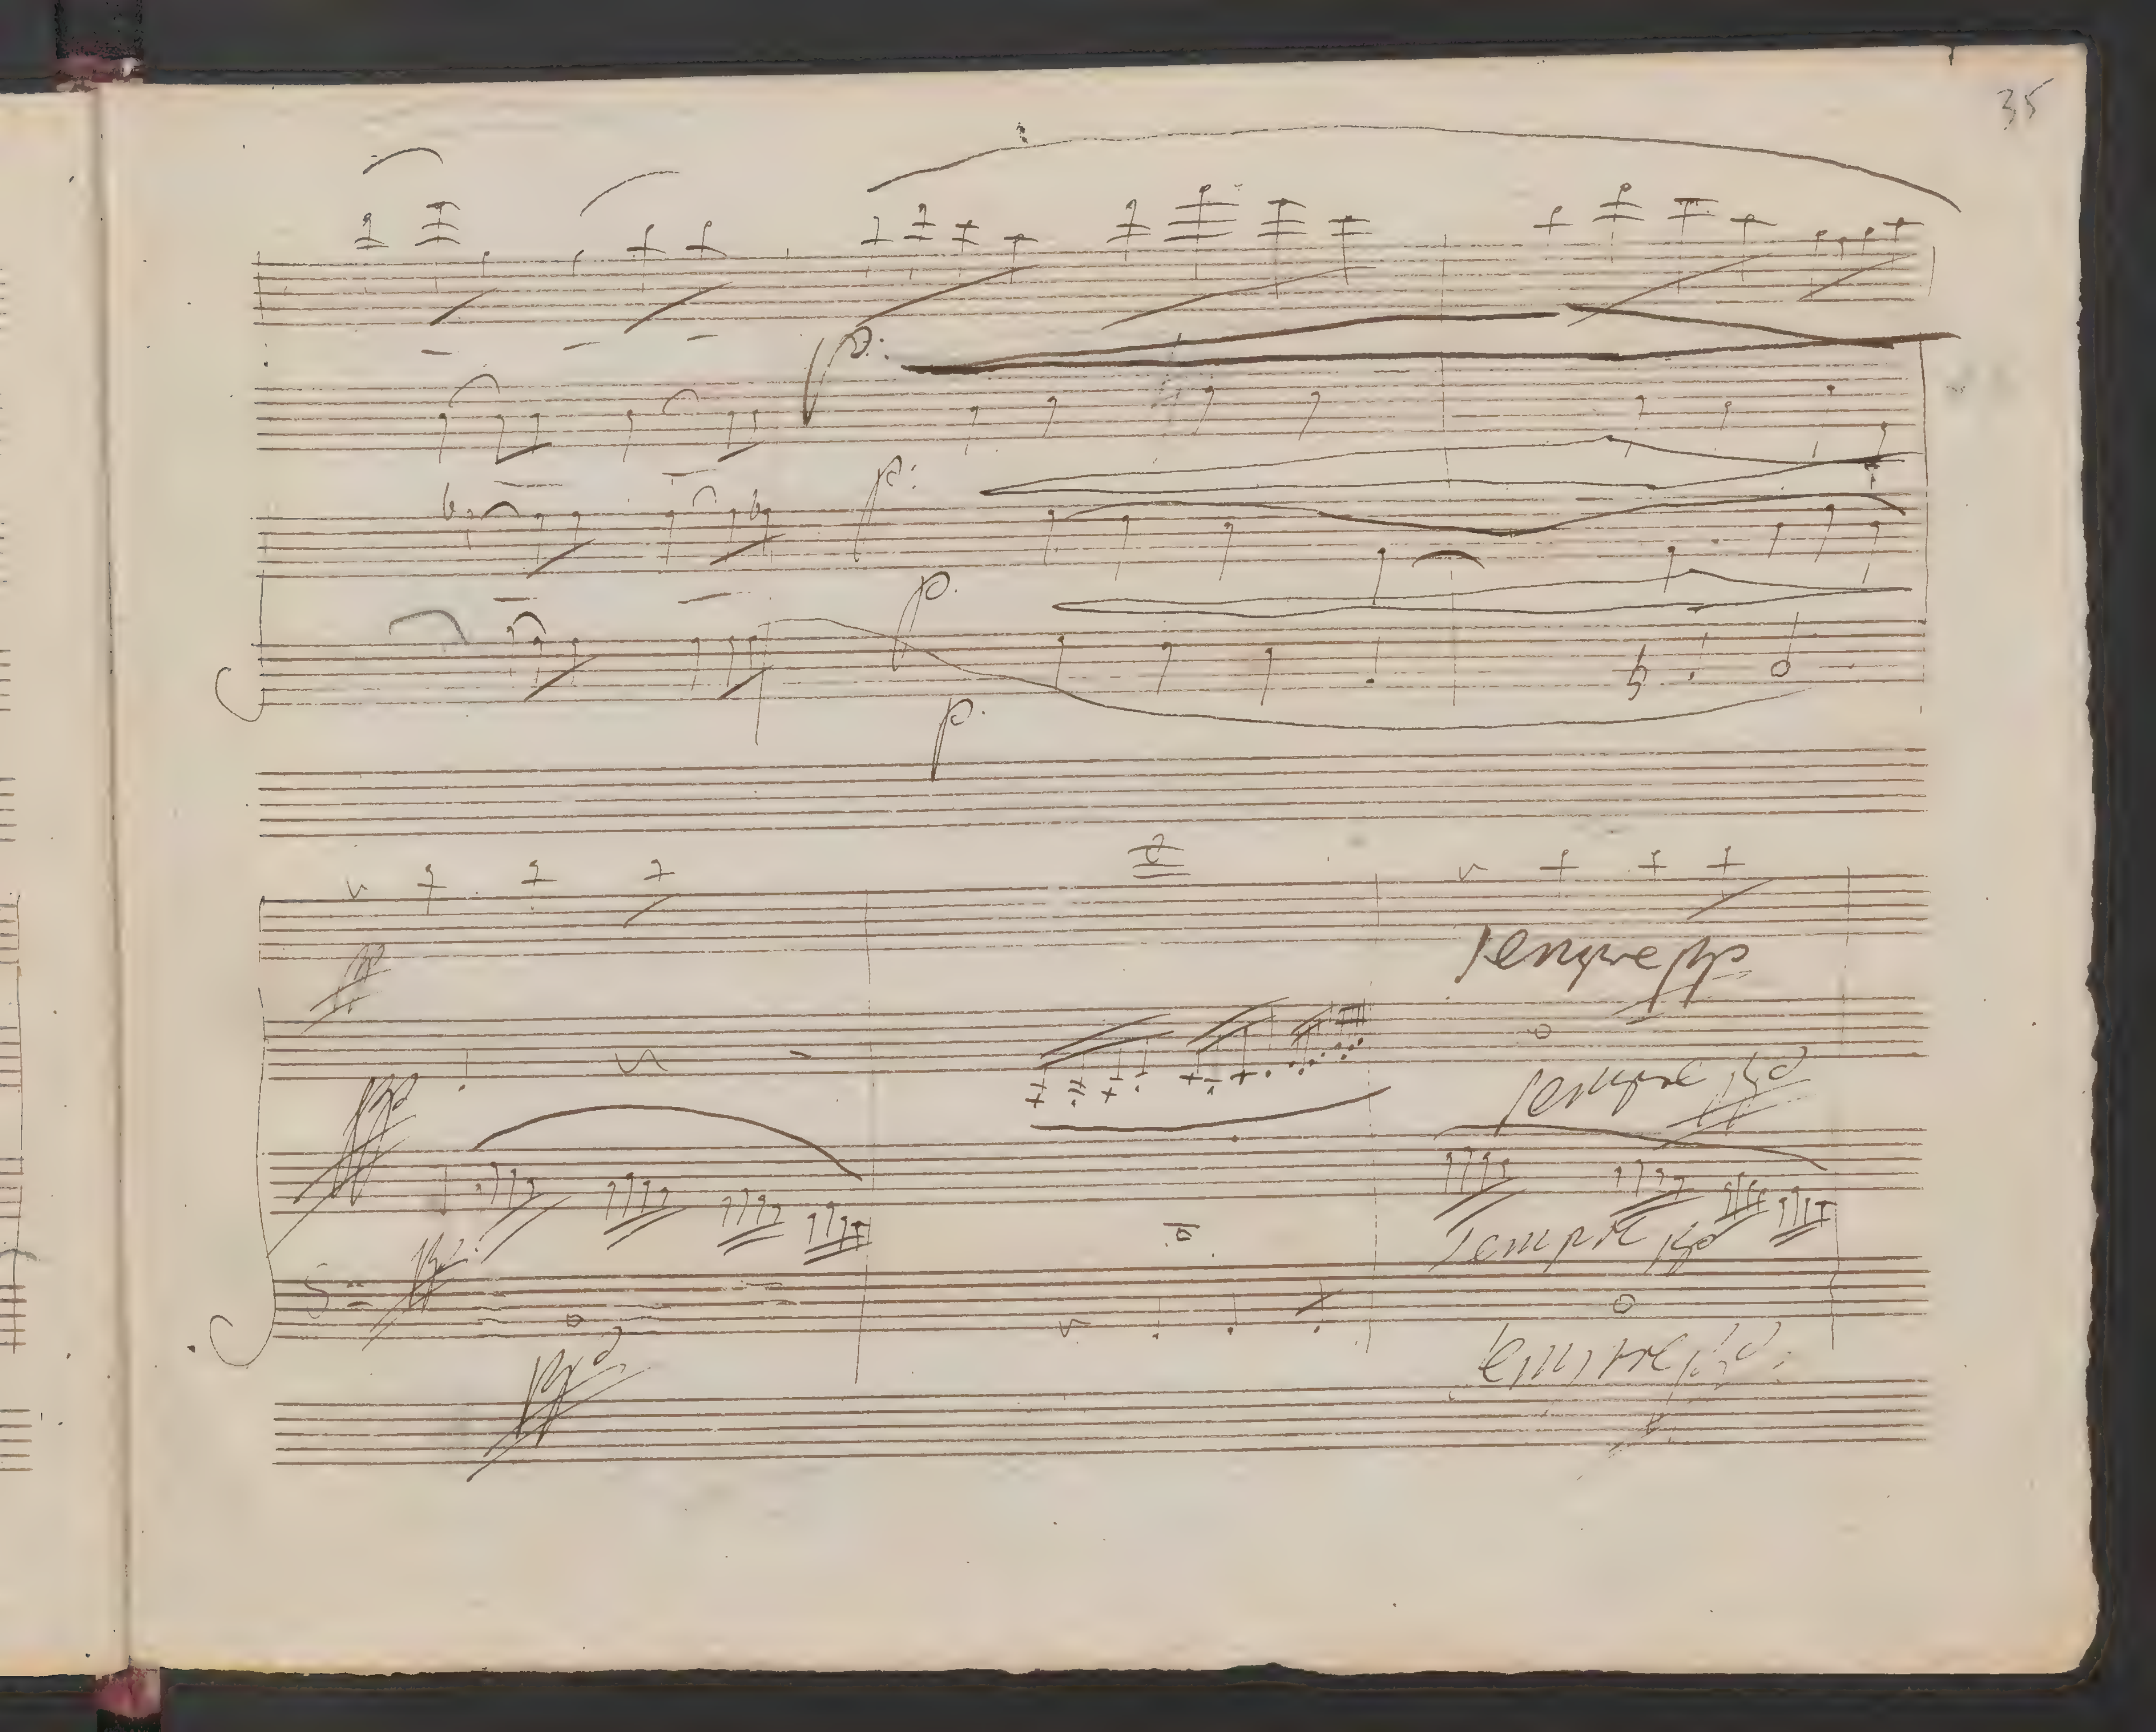 35
p:
p:
p.
p.
pp
sempre pp
pp
sempre pp
pp
sempre pp
pp
sempre pp: